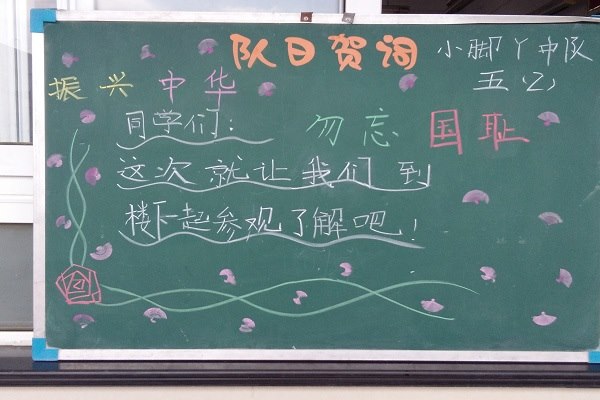 队日贺词
小脚丫中队
五(2)
振兴中华
同学们:
勿忘国耻
这次就让我们到
楼下一起参观了解吧!